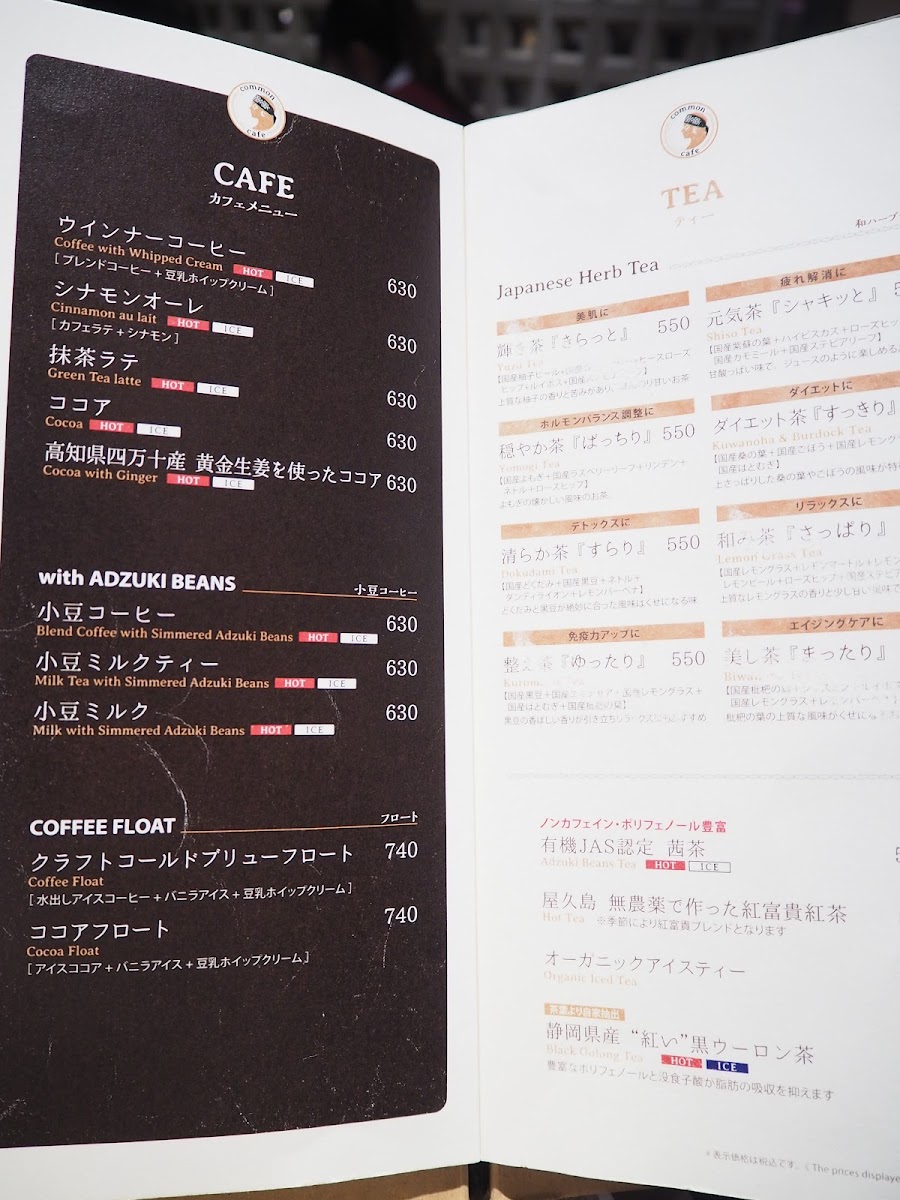 common
cafe
CAFE
カフェメニュー
ウインナーコーヒー
Coffee with Whipped Cream HOT ICE
[ ブレンドコーヒー + 豆乳ホイップクリーム ]
630
シナモンオーレ
Cinnamon au lait HOT ICE
[ カフェラテ + シナモン ]
630
抹茶ラテ
Green Tea latte HOT ICE
630
ココア
Cocoa HOT ICE
630
高知県四万十産 黄金生姜を使ったココア 630
Cocoa with Ginger HOT ICE
with ADZUKI BEANS 小豆コーヒー
小豆コーヒー 630
Blend Coffee with Simmered Adzuki Beans HOT ICE
小豆ミルクティー 630
Milk Tea with Simmered Adzuki Beans HOT ICE
小豆ミルク 630
Milk with Simmered Adzuki Beans HOT ICE
COFFEE FLOAT フロート
クラフトコールドブリューフロート 740
Coffee Float
[ 水出しアイスコーヒー + バニラアイス + 豆乳ホイップクリーム ]
ココアフロート 740
Cocoa Float
[ アイスココア + バニラアイス + 豆乳ホイップクリーム ]
common
cafe
TEA
ティー
和ハーブ
Japanese Herb Tea
美肌に
輝き茶『きらっと』 550
Yuzu Tea
ヒップ+ルイボス+国産
上質な柚子の香りと苦みがあり、甘いお茶
ホルモンバランス調整に
穏やか茶『ぱっちり』 550
Yomogi Tea
【国産よもぎ+国産ラズベリーリーフ+リンデン+
ネトル+ローズヒップ】
よもぎの懐かしい風味のお茶
デトックスに
清らか茶『すらり』 550
Dokudami Tea
【国産どくだみ+国産黒豆+ネトル+
ダンディライオン+レモンバーベナ】
どくだみと黒豆が絶妙に合った風味はくせになる味
免疫力アップに
整え茶『ゆったり』 550
【国産黒豆+国産エキナセア+国産レモングラス+
国産はとむぎ+国産枇杷の葉】
黒豆の香ばしい香りが引き立ちリラックスにもおすすめ
疲れ解消に
元気茶『シャキッと』
Shiso Tea
【国産紫蘇の葉+ハイビスカス+ローズヒップ
国産カモミール+国産ステビアリーフ】
甘酸っぱい味で、ジュースのように楽しめる
ダイエットに
ダイエット茶『すっきり』
Kuwanoha & Burdock Tea
【国産桑の葉+国産ごぼう+国産レモング
国産はとむぎ】
さっぱりした桑の葉やごぼうの風味が特
リラックスに
和み茶『さっぱり』
Lemon Grass Tea
【国産レモングラス+レモンマートル+レモン
レモンピール+ローズヒップ+国産ステビ
上質なレモングラスの香りと少し甘い風味で
エイジングケアに
美し茶『まったり』
Biwa
国産レモングラス+レモンバーベナ
枇杷の葉の上質な風味がくせになる
ノンカフェイン・ポリフェノール豊富
有機JAS認定 茜茶
Adzuki Beans Tea HOT ICE
屋久島 無農薬で作った紅富貴紅茶
Hot Tea ※季節により紅富貴ブレンドとなります
オーガニックアイスティー
Organic Iced Tea
茶葉より自家抽出
静岡県産 “紅い”黒ウーロン茶
Black Oolong Tea HOT ICE
豊富なポリフェノールと没食子酸が脂肪の吸収を抑えます
*表示価格は税込です。( The prices displaye